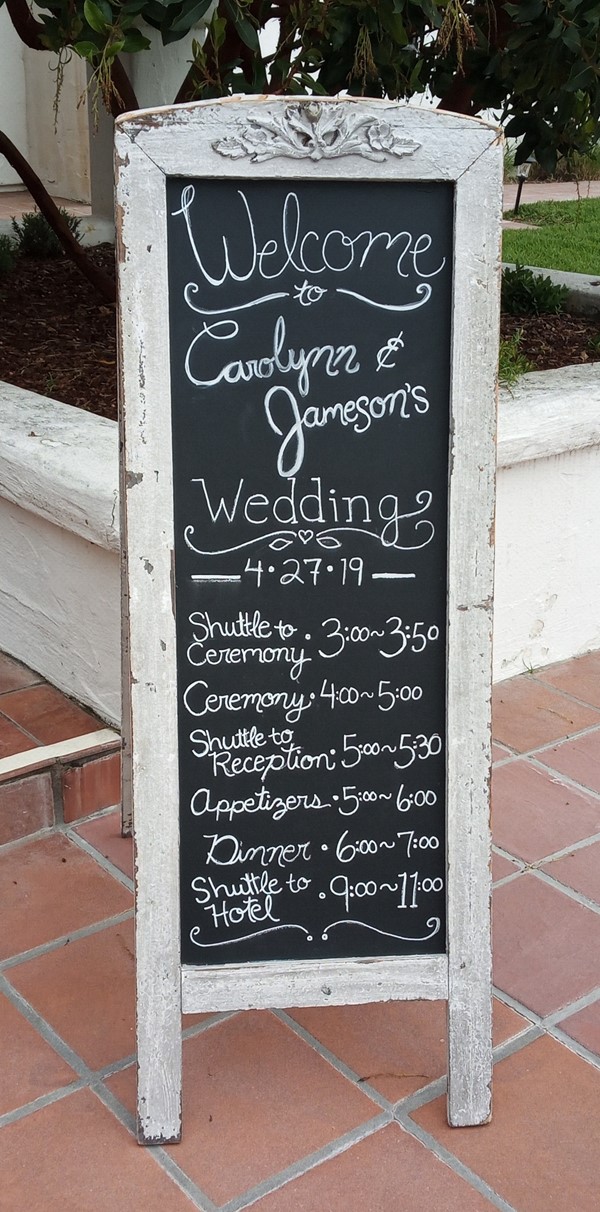 Welcome
to
Carolynn &
Jameson's
Wedding
4•27•19
Shuttle to
Ceremony • 3:00~3:50
Ceremony • 4:00~5:00
Shuttle to
Reception • 5:00~5:30
Appetizers • 5:00~6:00
Dinner • 6:00~7:00
Shuttle to
Hotel • 9:00~11:00